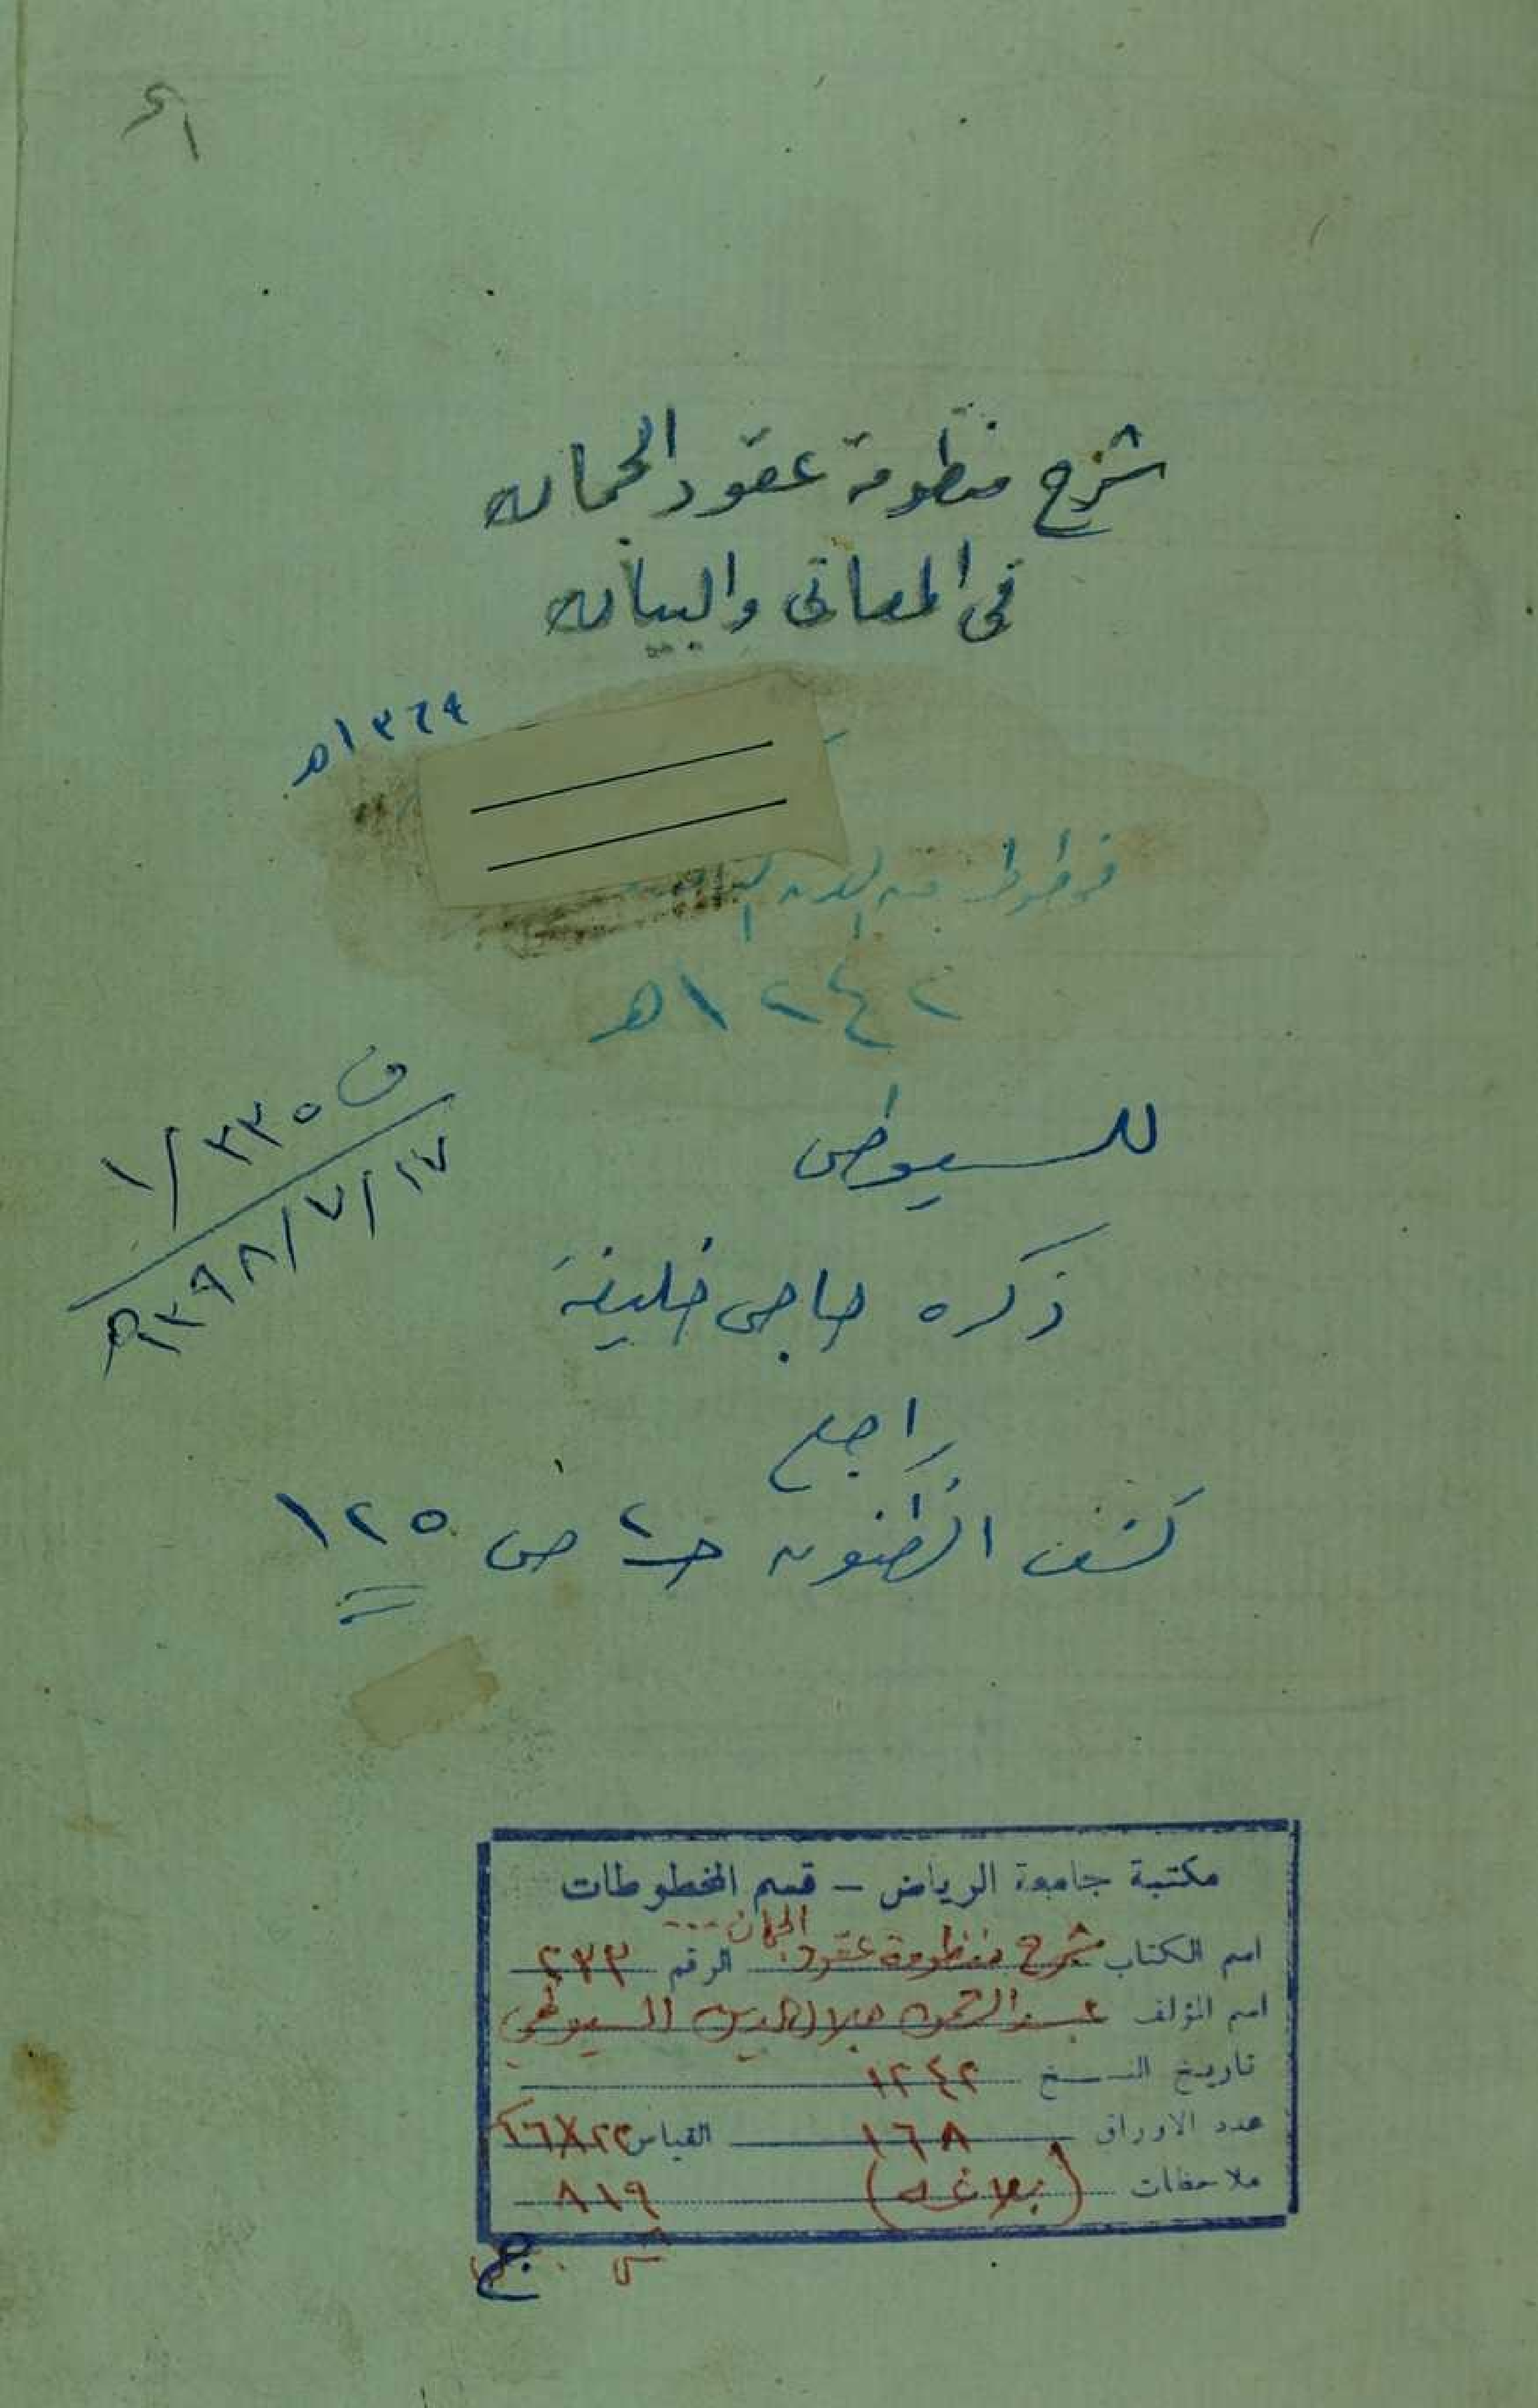 شرح منظومة عقود الجمان
في المعاني والبيان
١٣٦٤هـ
مخطوط من القرن
١٢٤٢هـ
للسيوطي
ف ٣٣٥/١
١٣٩٨/٧/١٧هـ
ذكره حاجي خليفة
راجع
كشف الظنون حـ٢ ص ١٢٥
مكتبة جامعة الرياض - قسم المخطوطات
اسم الكتاب شرح منظومة عقود الجمان... الرقم ٢٣٣
اسم المؤلف عبد الرحمن جلال الدين السيوطي
تاريخ النسخ ١٢٤٢
عدد الاوراق ١٦٨ القياس ٢٣×١٦
ملاحظات (بلاغه) ٨١٩